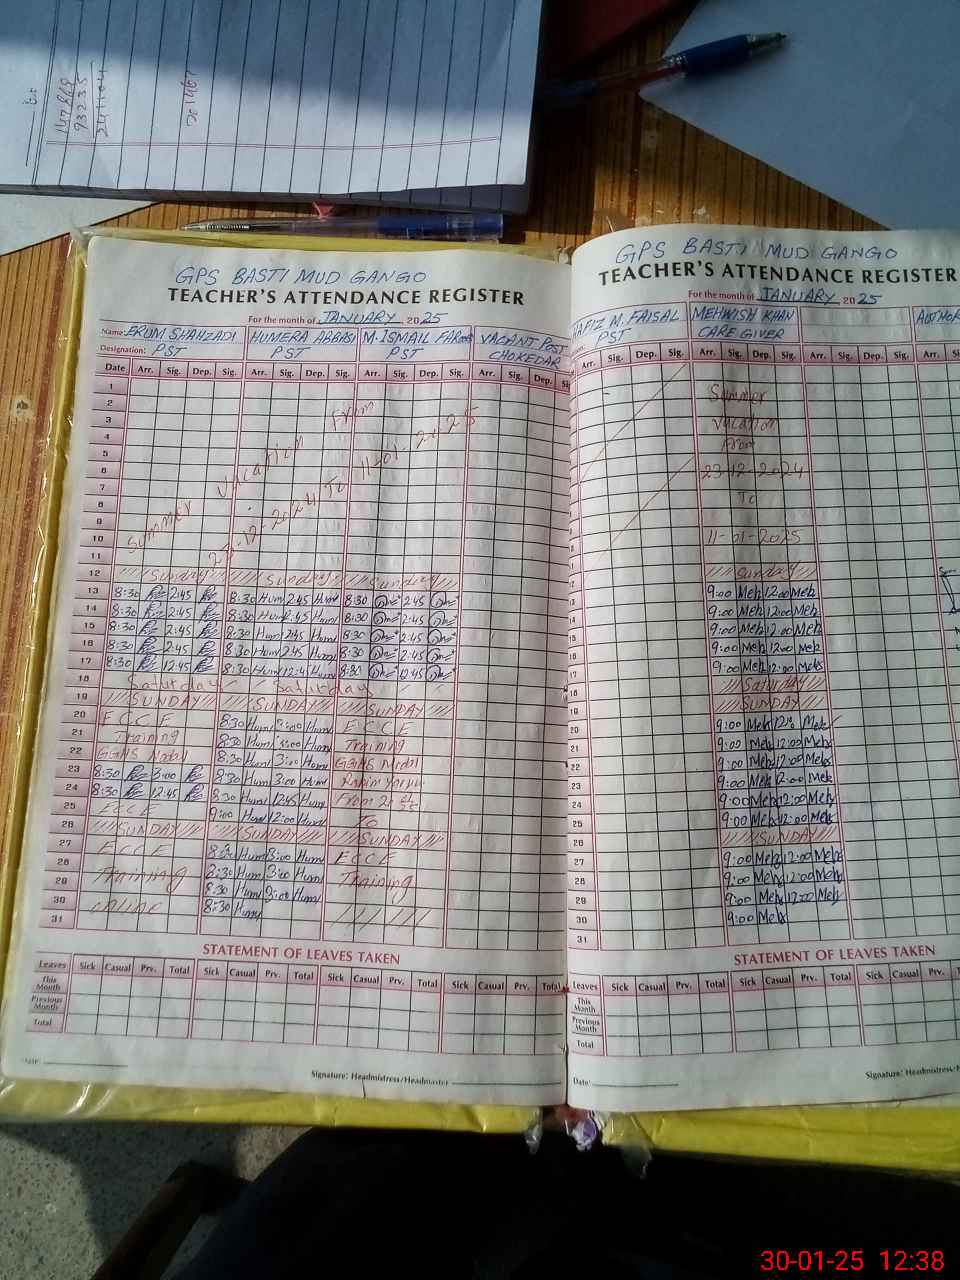 147869
93235
241104
201467
GPS BASTI MUD GANGO
TEACHER'S ATTENDANCE REGISTER
For the month of JANUARY 2025
Name: ERUM SHAHZADI HUMERA ABBASI M. ISMAIL VACANT POST
Designation: PST PST PST CHOKEDAR
Date Arr. Sig. Dep. Sig. Arr. Sig. Dep. Sig. Arr. Sig. Dep. Sig. Arr. Sig. Dep. Sig.
1
2
3
4
5
6
7
8
9
10
11
Summer vacation From
23-12-2024 To 11-01-2025
12 Sunday Sunday Sunday
13 8:30 2:45 8:30 Hum 2:45 Hum 8:30 2:45
14 8:30 2:45 8:30 Hum 2:45 Hum 8:30 2:45
15 8:30 2:45 8:30 Hum 2:45 Hum 8:30 2:45
16 8:30 2:45 8:30 Hum 2:45 Hum 8:30 2:45
17 8:30 12:45 8:30 Hum 12:45 Hum 8:30 12:45
18 Saturday Saturday
19 SUNDAY SUNDAY SUNDAY
20 ECCE 8:30 Hum 3:00 Hum ECCE
21 Training 8:30 Hum 3:00 Hum Training
22 GGHS 8:30 Hum 3:00 Hum GGHS
23 8:30 3:00 8:30 Hum 3:00 Hum
24 8:30 12:45 8:30 Hum 12:45 Hum From
25 ECCE 9:00 Hum 12:00 Hum To
26 SUNDAY SUNDAY SUNDAY
27 ECCE 8:30 Hum 3:00 Hum ECCE
28 Training 8:30 Hum 3:00 Hum Training
29 8:30 Hum 3:00 Hum
30 8:30 Hum
31
STATEMENT OF LEAVES TAKEN
Leaves Sick Casual Prv. Total Sick Casual Prv. Total Sick Casual Prv. Total Sick Casual Prv. Total
This Month
Previous Month
Total
Date:
Signature: Headmistress/Headmaster
GPS BASTI MUD GANGO
TEACHER'S ATTENDANCE REGISTER
For the month of JANUARY 2025
HAFIZ M. FAISAL MEHWISH KHAN
PST CARE GIVER
Arr. Sig. Dep. Sig. Arr. Sig. Dep. Sig. Arr. Sig. Dep. Sig. Arr.
Summer
vacation
From
23-12-2024
To
11-01-2025
Sunday
9:00 Meh 12:00 Meh
9:00 Meh 12:00 Meh
9:00 Meh 12:00 Meh
9:00 Meh 12:00 Meh
9:00 Meh 12:00 Meh
Saturday
SUNDAY
9:00 Meh 12:00 Meh
9:00 Meh 12:00 Meh
9:00 Meh 12:00 Meh
9:00 Meh 12:00 Meh
9:00 Meh 12:00 Meh
9:00 Meh 12:00 Meh
SUNDAY
9:00 Meh 12:00 Meh
9:00 Meh 12:00 Meh
9:00 Meh 12:00 Meh
9:00 Meh
STATEMENT OF LEAVES TAKEN
Leaves Sick Casual Prv. Total Sick Casual Prv. Total Sick Casual Prv. Total
This Month
Previous Month
Total
Date:
Signature:
30-01-25 12:38